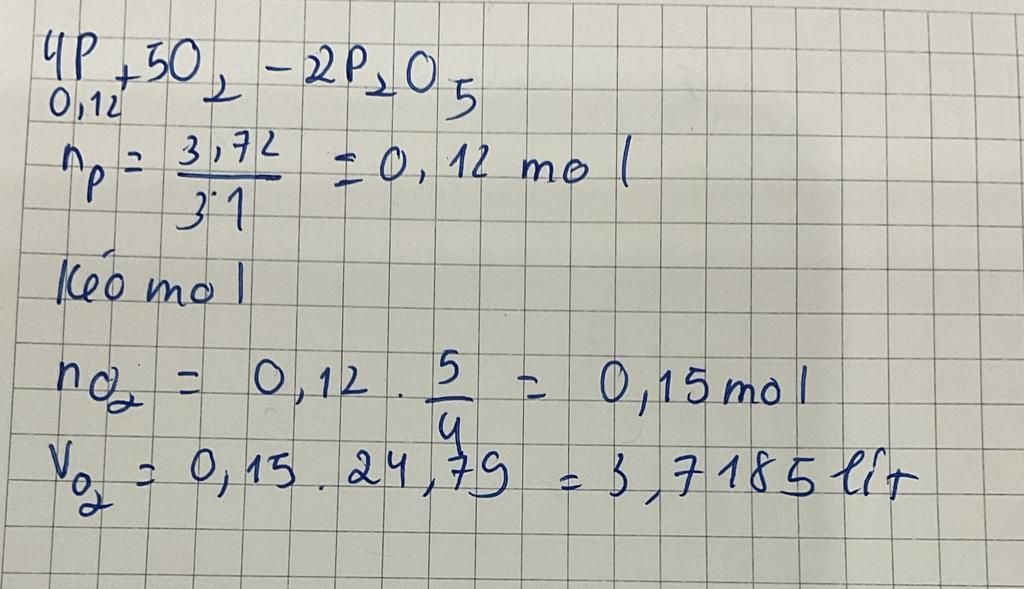 4P + 5O₂ - 2P₂O₅
0,12
nₚ = 3,72/31 = 0,12 mol
Kéo mol
nO₂ = 0,12 . 5/4 = 0,15 mol
V O₂ = 0,15 . 24,79 = 3,7185 lít